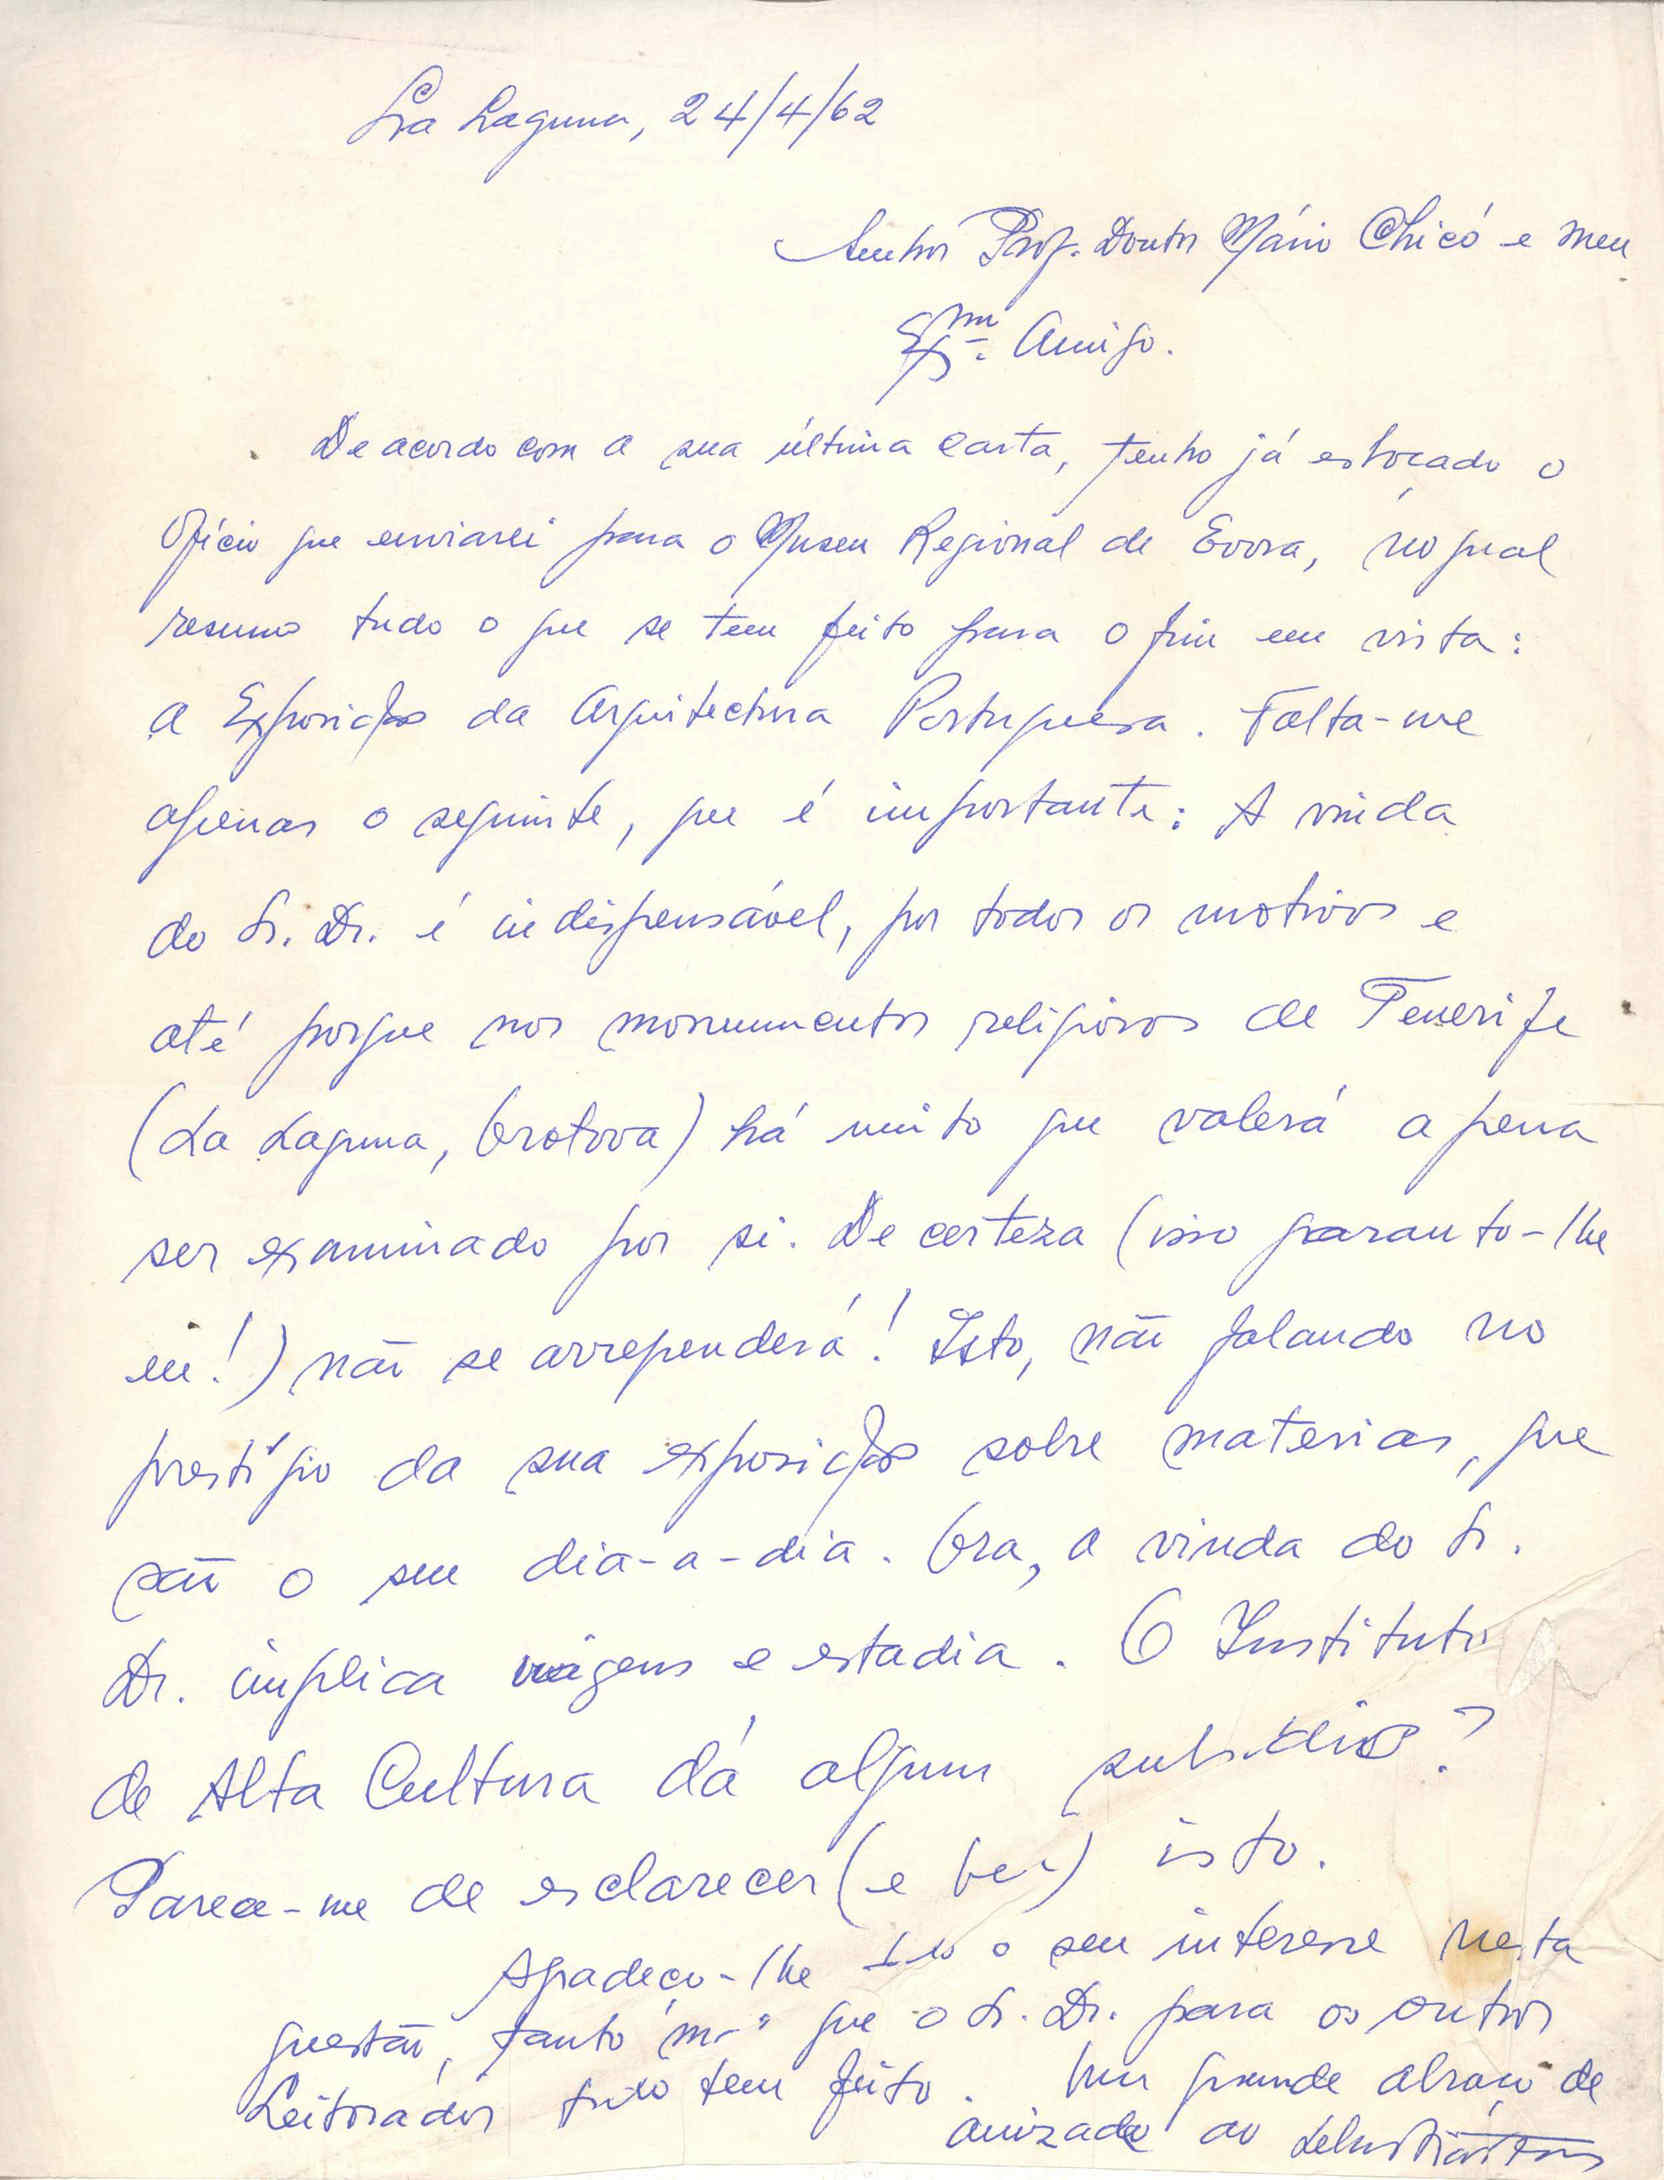 La Laguna, 24/4/62
Senhor Prof. Doutor Mário Chicó e meu
Exmº. Amigo.
De acordo com a sua última carta, tenho já esboçado o
Ofício que enviarei para o Museu Regional de Evora, no qual
resumo tudo o que se tem feito para o fim em vista:
a Exposição da Arquitectura Portuguesa. Falta-me
apenas o seguinte, que é importante: A vinda
do Sr. Dr. é indispensável, por todos os motivos e
até porque nos monumentos religiosos de Tenerife
(La Laguna, Orotova) há muito que valerá a pena
ser examinado por si. De certeza (isso garanto-lhe
eu!) não se arrependerá! Isto, não falando no
prestígio da sua exposição sobre materias, que
são o seu dia-a-dia. Ora, a vinda do Sr.
Dr. implica viagens e estadia. O Instituto
de Alta Cultura dá algum subsídio?
Parece-me de esclarecer (e bem) isto.
Agradeço-lhe o seu interesse nesta
questão, tanto que o Sr. Dr. para os outros
Leitorados tudo tem feito. Um grande abraço de
amizade